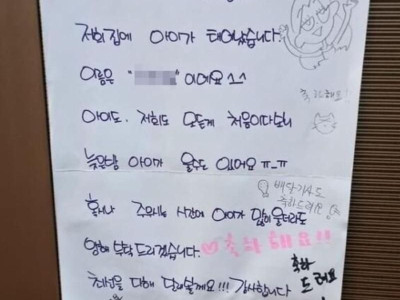 저희집에 아이가 태어났습니다.
이름은 " " 이에요 ^-^
축하해요!
아이도, 저희도 모든게 처음이다보니
늦은밤 아이가 울수도 있어요 ㅠ_ㅠ
배달기사도
축하드려요
혹시나 주무시는 시간에 아이가 많이 울더라도
양해 부탁드리겠습니다. ♡축하해요!!
최선을 다해 달래볼게요!!! 감사합니다
축하
드려요